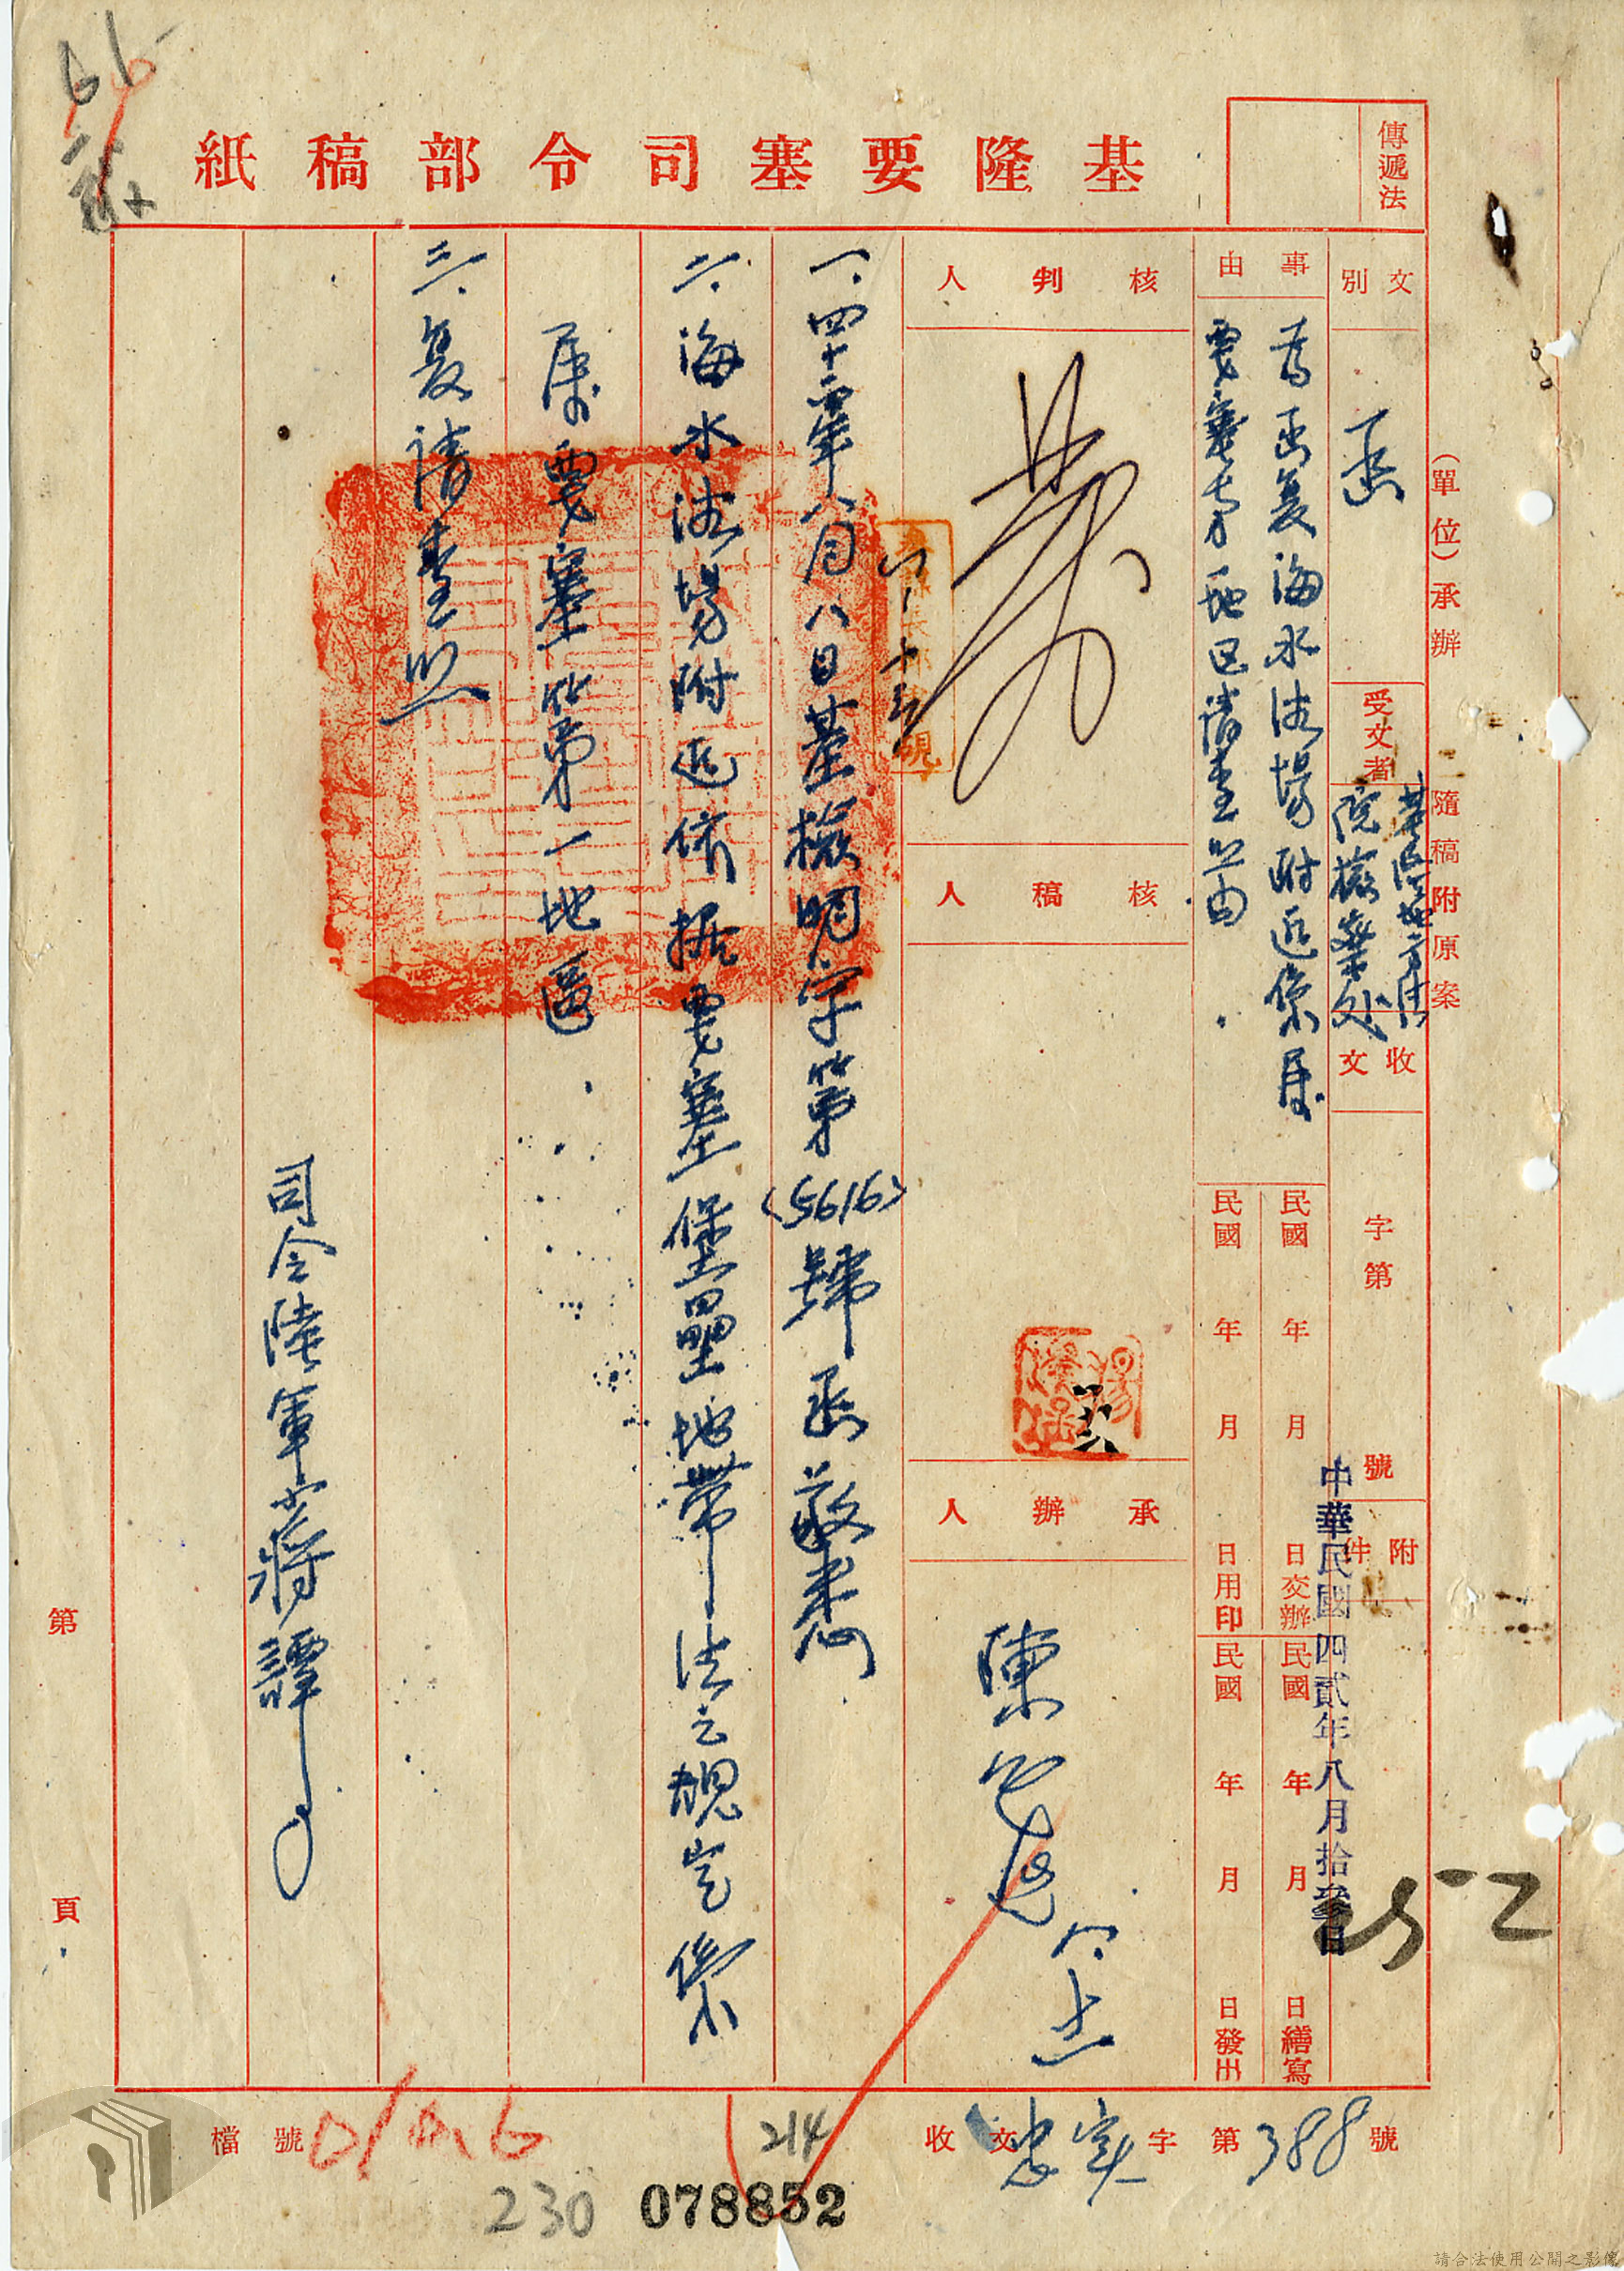 基隆要塞司令部稿紙
傳遞法
(單位)承辦
隨稿附原案
文別
函
受文者
基隆地方法
院檢察处
收文
字第
號
附件
中華民國四貳年八月拾參日
事由
為函复海水浴場附近係屬
要塞第一地区請查照由
民國 年 月 日交辦
民國 年 月 日繕寫
民國 年 月 日用印
民國 年 月 日發出
核判人
核稿人
承辦人
陳
一、四十二年八月八日基檢明字第(5616)號函敬悉
二、海水浴場附近依据要塞堡壘地帶法之規定係
屬要塞第一地區.
三、复請查照
司令陸軍少將譚
第
頁
檔號
214
收文忠实字第388號
230
078852
52
請合法使用公開之影像